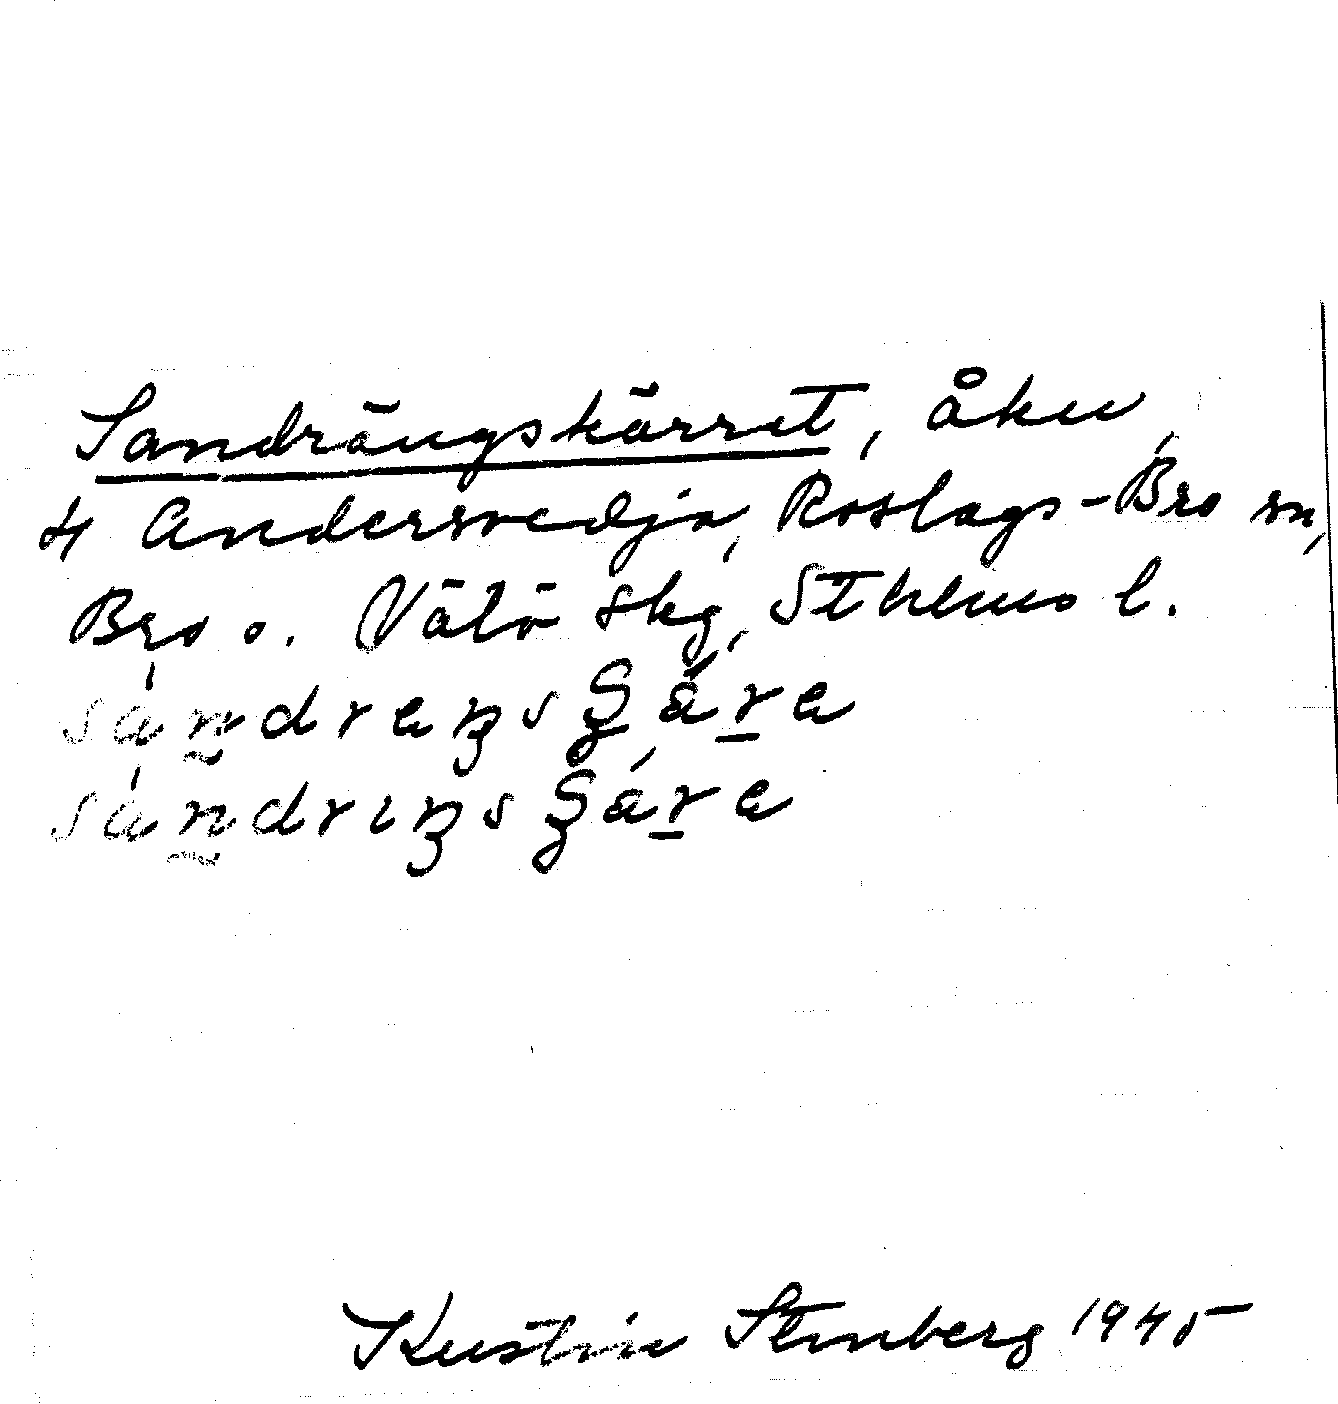 Sandrängskärret, åker,
4 Andersvedja, Roslags-Bro sn,
Bro o. Vätö skg, Sthlms l.
Kerstin Stenberg 1945